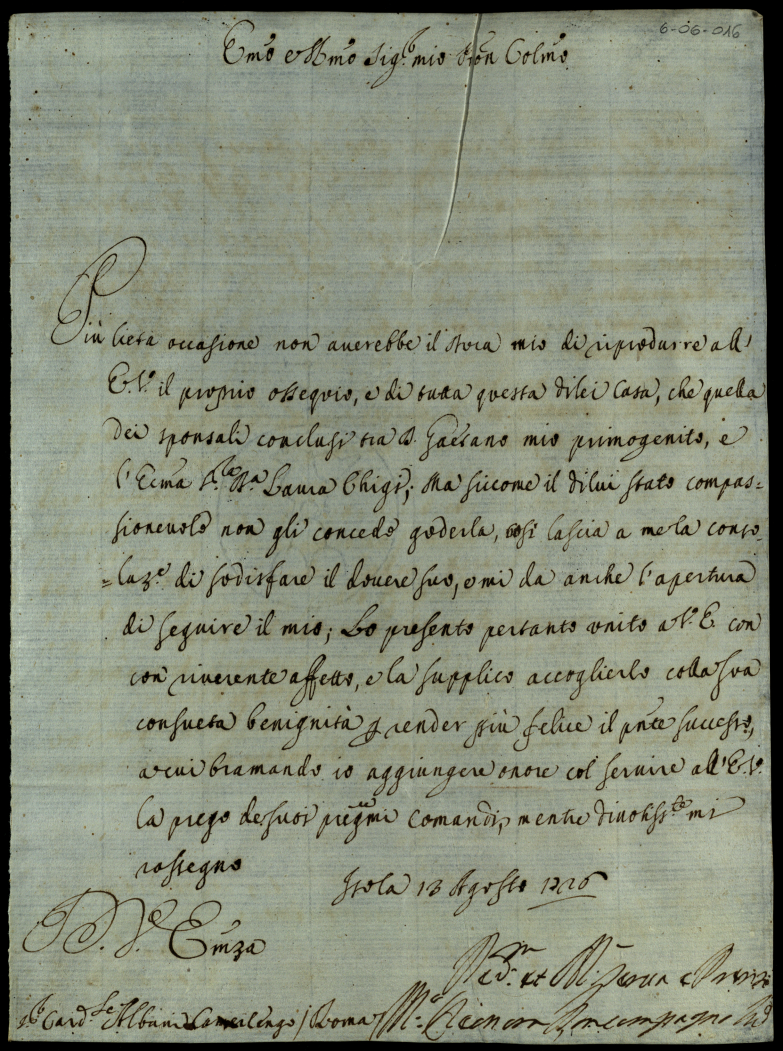 6-06-016
Emo e Rmo Sig.r mio Pron Colmo
Più lieta occasione non auerebbe il Duca mio di riprodurre all'
E.V. il proprio ossequio, e di tutta questa dilei Casa, che quella
dei sponsali conclusi tra D. Gaetano mio primogenito, e
l'Ecma Sra. Da. Laura Chigi; Ma siccome il dilui stato compas=
sioneuole non gli concede goderla, così lascia a me la conso=
=laze. di sodisfare il douere suo, e mi da anche l'apertura
di seguire il mio; Lo presento pertanto unito a V.E. con
con riuerente affetto, e la supplico accoglierlo colla sua
consueta benignità p render più felice il pnte successo,
a cui bramando io aggiungere onore col seruire all'E.V.
la prego de suoi pregmi comandi, mentre diuotisste. mi
rassegno
Isola 13 Agosto 1726
D. V. Emza
Card.le Albani Camerlengo / Roma
M.a Eleonora Boncompagni